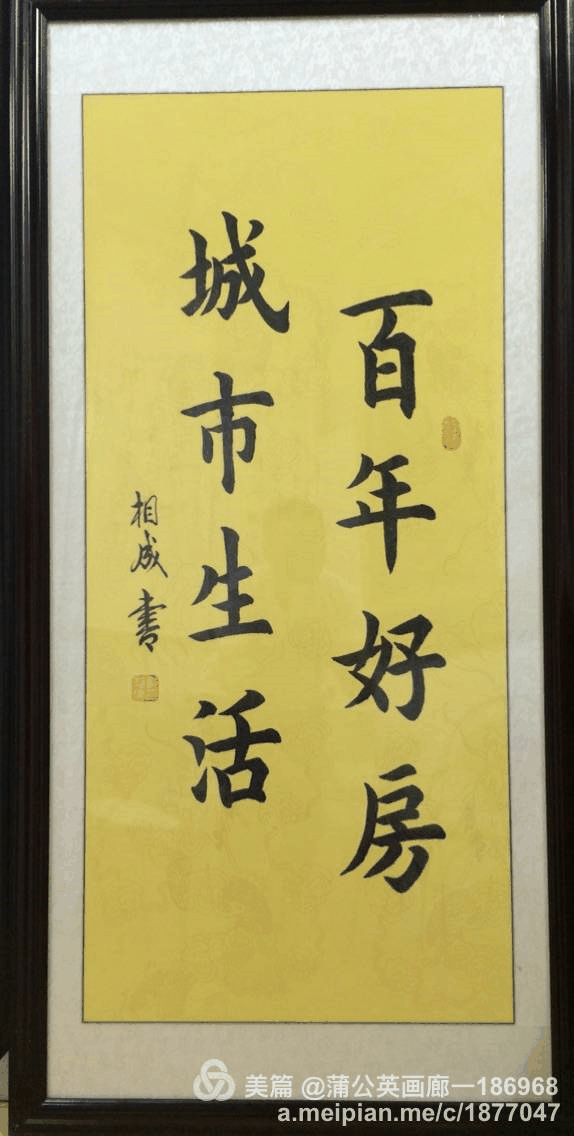 百年好房
城市生活
相成书
美篇 @蒲公英画廊一186968
a.meipian.me/c/1877047